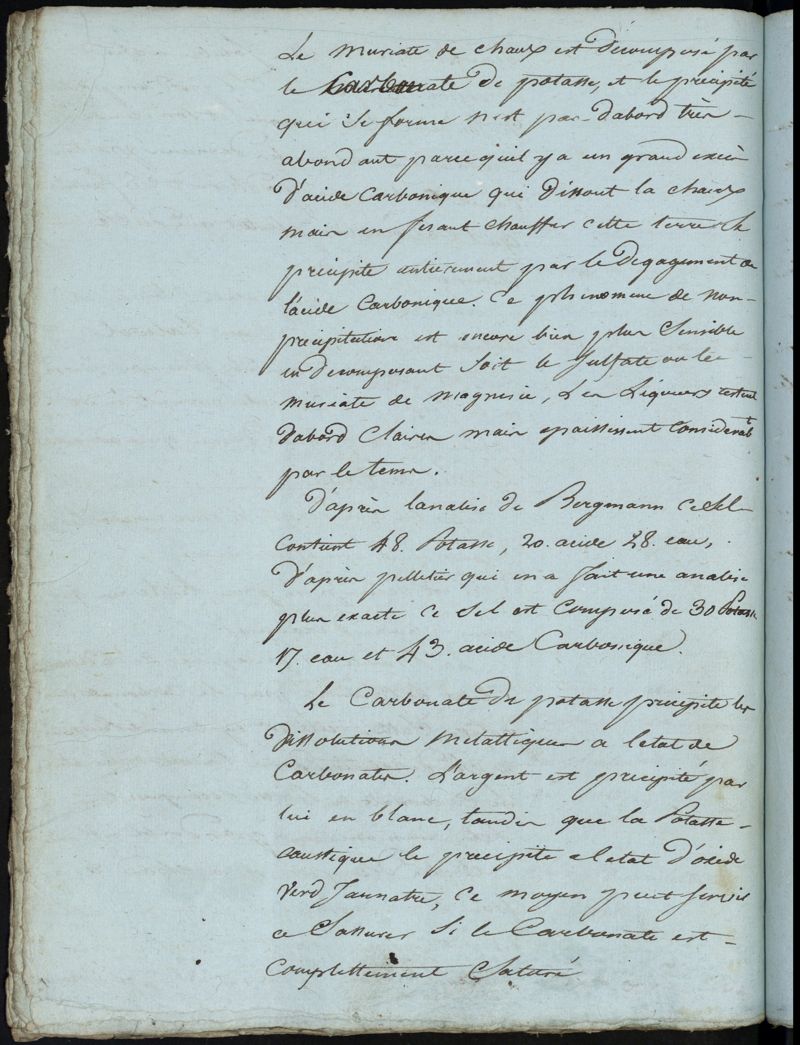 Le muriate de chaux est décomposé par
le Carbonate de potasse, et le précipité
qui se forme n'est pas d'abord très –
abondant parce qu'il y a un grand excès
D'acide Carbonique qui dissout la chaux
mais en fesant chauffer cette terre se
précipite entièrement par le Dégagement de
l'acide Carbonique. Ce phénomène de non-
précipitation est encore bien plus Sensible
en Décomposant Soit le Sulfate ou le –
muriate de magnésie, Les Liqueurs restent
d'abord Claires mais epaississent Considerabt
par le tems.
D'après l'analise de Bergmann ce Sel
Contient 48. Potasse, 20. acide 28. eau,
D'après pelletier qui en a fait une analise
plus exacte ce Sel est Composé de 30 Potasse
17. eau et 43. acide Carbonique.
Le Carbonate de potasse précipite les
dissolutions Métalliques a l'etat de
Carbonates. L'argent est précipité par
lui en blanc, tandis que la Potasse –
caustique le précipite a l'etat d'oxide
verd Jaunatre, Ce moyen peut servir
a S'assurer Si le Carbonate est –
complettement Saturé